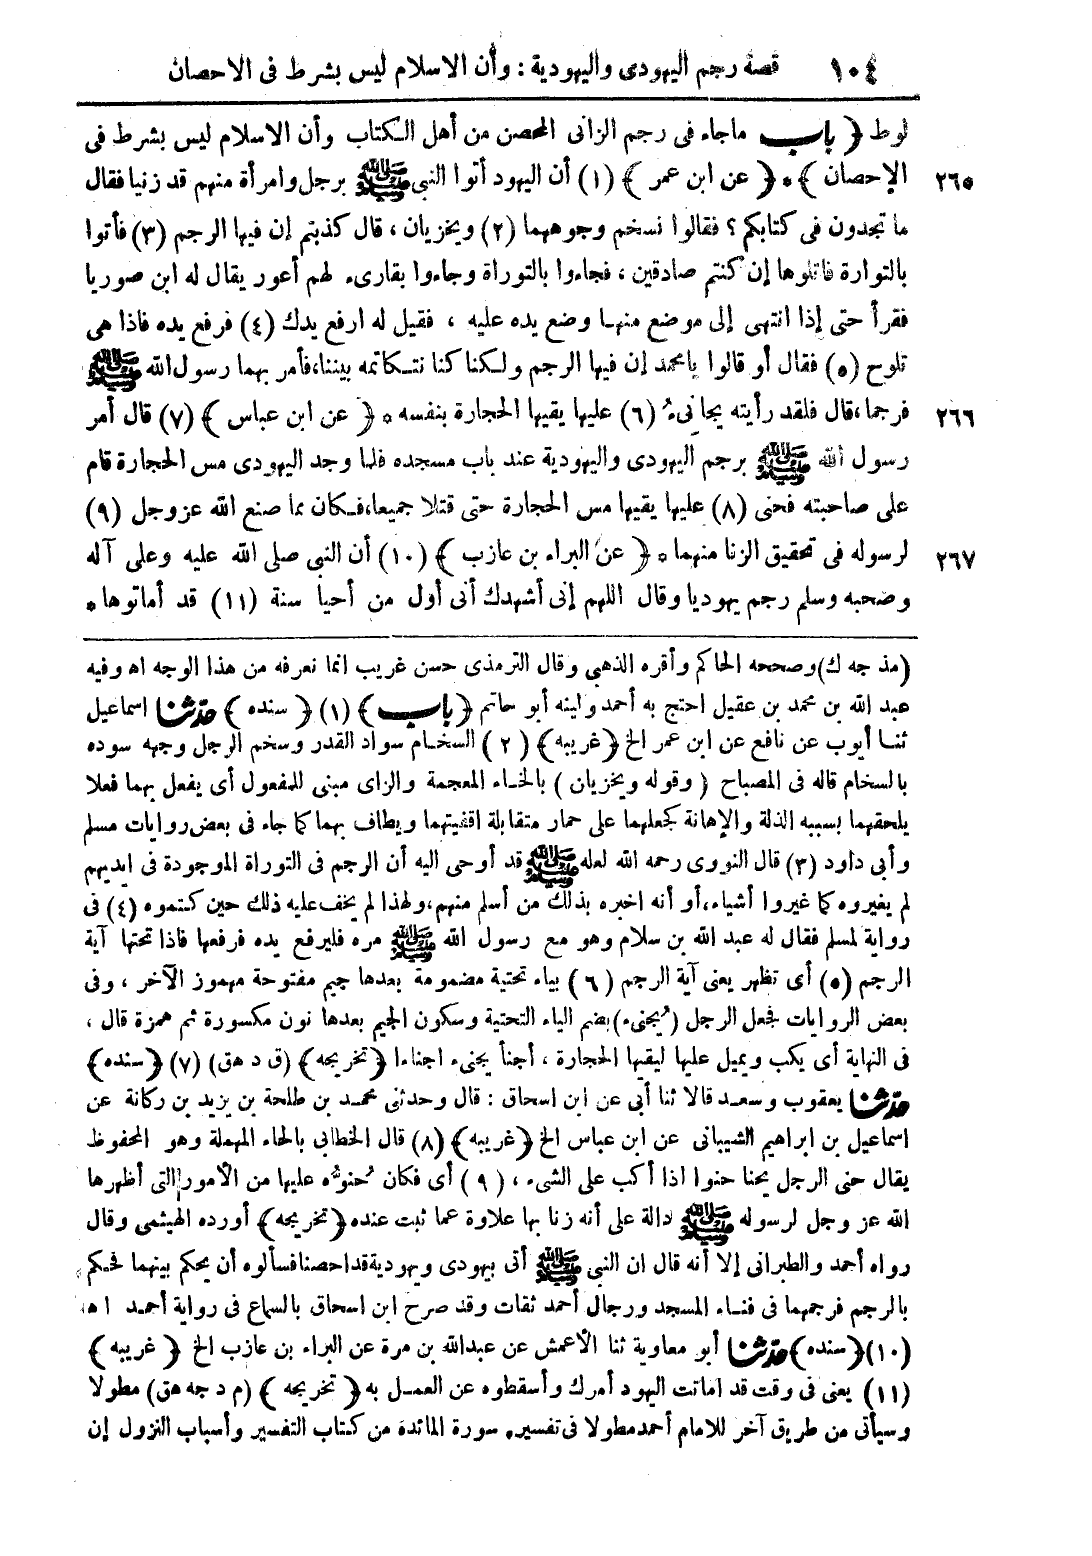 ١٠٤ قصة رجم اليهودى واليهودية : وأن الاسلام ليس بشرط فى الاحصان
لوط ﴿ باب ﴾ ماجاء فى رجم الزانى المحصن من أهل الكتاب وأن الاسلام ليس بشرط فى
٢٦٥ الإحصان ﴾ * ﴿ عن ابن عمر ﴾ (١) أن اليهود أتوا النبى ﷺ برجل وامرأة منهم قد زنيا فقال
ما تجدون فى كتابكم ؟ فقالوا نسخم وجوههما (٢) ويخزيان ، قال كذبتم إن فيها الرجم (٣) فأتوا
بالتوارة فاتلوها إن كنتم صادقين ، فجاءوا بالتوراة وجاءوا بقارىء لهم أعور يقال له ابن صوريا
فقرأ حتى إذا انتهى إلى موضع منها وضع يده عليه ، فقيل له ارفع يدك (٤) فرفع يده فاذا هى
تلوح (٥) فقال أو قالوا يامحمد إن فيها الرجم ولكنا كنا نتكاتمه بيننا،فأمر بهما رسول الله ﷺ
٢٦٦ فرجما،قال فلقد رأيته يجانىء (٦) عليها يقيها الحجارة بنفسه * ﴿ عن ابن عباس ﴾ (٧) قال أمر
رسول الله ﷺ برجم اليهودى واليهودية عند باب مسجده فلما وجد اليهودى مس الحجارة قام
على صاحبته فحنى (٨) عليها يقيها مس الحجارة حتى قتلا جميعا،فكان مما صنع الله عز وجل (٩)
٢٦٧ لرسوله فى تحقيق الزنا منهما * ﴿ عن البراء بن عازب ﴾ (١٠) أن النبى صلى الله عليه وعلى آله
وضحبه وسلم رجم يهوديا وقال اللهم إنى أشهدك أنى أول من أحيا سنة (١١) قد أماتوها *
(مذ جه ك)وصححه الحاكم وأقره الذهبى وقال الترمذى حسن غريب انما نعرفه من هذا الوجه اه وفيه
عبد الله بن محمد بن عقيل احتج به أحمد ولينه أبو حاتم ﴿ باب ﴾ (١) ﴿ سنده ﴾ حدثنا اسماعيل
ثنا أيوب عن نافع عن ابن عمر الخ ﴿غريبه﴾ (٢) السخام سواد القدر وسخم الرجل وجهه سوده
بالسخام قاله فى المصباح ( وقوله ويخزيان ) بالخاء المعجمة والزاى مبنى للمفعول أى يفعل بهما فعلا
يلحقهما بسببه الذلة والإهانة كجعلهما على حمار متقابلة اقفيتهما ويطاف بهما كما جاء فى بعض روايات مسلم
وأبى داود (٣) قال النووى رحمه الله لعله ﷺ قد أوحى اليه أن الرجم فى التوراة الموجودة فى ايديهم
لم يغيروه كما غيروا أشياء،أو أنه اخبره بذلك من أسلم منهم،ولهذا لم يخف عليه ذلك حين كتموه (٤) فى
رواية لمسلم فقال له عبد الله بن سلام وهو مع رسول الله ﷺ مره فليرفع يده فرفعها فاذا تحتها آية
الرجم (٥) أى تظهر يعنى آية الرجم (٦) بياء تحتية مضمومة بعدها جيم مفتوحة مهموز الآخر ، وفى
بعض الروايات فجعل الرجل (يجنىء)بضم الياء التحتية وسكون الجيم بعدها نون مكسورة ثم همزة قال ،
فى النهاية أى يكب ويميل عليها ليقيها الحجارة ، أجنأ يجنىء اجناءا ﴿ تخريجه ﴾ (ق د هق) (٧) ﴿ سنده ﴾
حدثنا يعقوب وسعد قالا ثنا أبى عن ابن اسحاق : قال وحدثنى محمد بن طلحة بن يزيد بن ركانة عن
اسماعيل بن ابراهيم الشيبانى عن ابن عباس الخ ﴿غريبه﴾ (٨) قال الخطابى بالحاء المهملة وهو المحفوظ
يقال حنى الرجل يحنا حنوا اذا أكب على الشىء ، (٩) أى فكان حنوه عليها من الأمور التى أظهرها
الله عز وجل لرسوله ﷺ دالة على أنه زنا بها علاوة عما ثبت عنده ﴿تخريجه﴾ أورده الهيثمى وقال
رواه أحمد والطبرانى إلا أنه قال ان النبى ﷺ أتى بيهودى ويهودية قد احصنا فسألوه أن يحكم بينهما فحكم
بالرجم فرجمهما فى فناء المسجد ورجال أحمد ثقات وقد صرح ابن اسحاق بالسماع فى رواية أحمد اه
(١٠) ﴿سنده﴾ حدثنا أبو معاوية ثنا الأعمش عن عبدالله بن مرة عن البراء بن عازب الخ ﴿ غريبه ﴾
(١١) يعنى فى وقت قد اماتت اليهود أمرك وأسقطوه عن العمل به ﴿ تخريجه ﴾ (م د جه هق) مطولا
وسيأتى من طريق آخر للامام أحمد مطولا فى تفسير سورة المائدة من كتاب التفسير وأسباب النزول إن